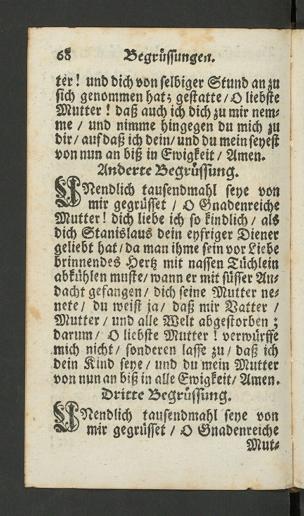 68 Begrüssungen.
ter! und dich von selbiger Stund an zu
sich genommen hat; gestatte / O liebste
Mutter! daß auch ich dich zu mir nem-
me / und nimme hingegen du mich zu
dir / auf daß ich dein / und du mein seyest
von nun an biß in Ewigkeit / Amen.
Anderte Begrüssung.
UNendlich tausendmahl seye von
mir gegrüsset / O Gnadenreiche
Mutter! dich liebe ich so kindlich / als
dich Stanislaus dein eyfriger Diener
geliebt hat / da man ihme sein vor Liebe
brinnendes Hertz mit nassen Tüchlein
abkühlen muste / wann er mit süsser An-
dacht gefangen / dich seine Mutter ne-
nete / du weist ja / daß mir Vatter /
Mutter / und alle Welt abgestorben;
darum / O liebste Mutter! verwürffe
mich nicht / sonderen lasse zu / daß ich
dein Kind seye / und du mein Mutter
von nun an biß in alle Ewigkeit / Amen.
Dritte Begrüssung.
UNendlich tausendmahl seye von
mir gegrüsset / O Gnadenreiche
Mut-